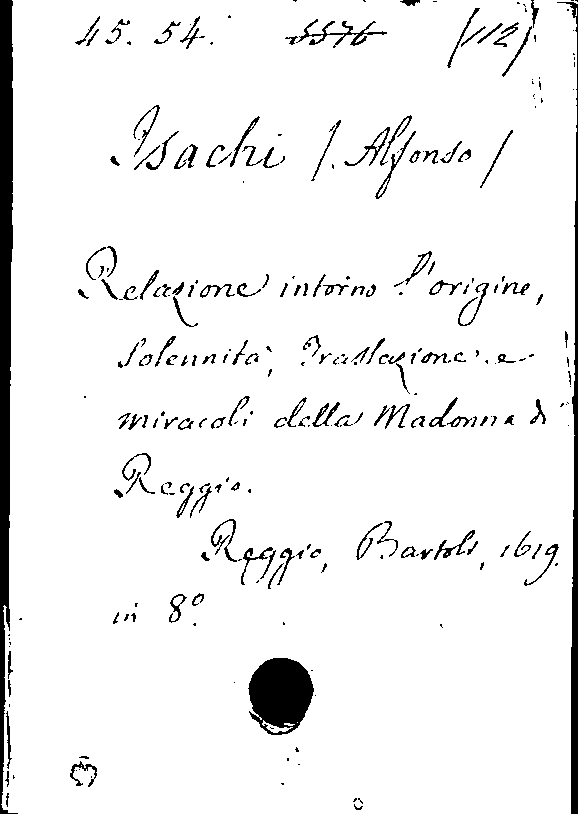 45. 54. 5576 (112)
Isachi (Alfonso)
Relazione intorno l'origine,
solennità, Traslazione e
miracoli della Madonna di
Reggio.
Reggio, Bartoli, 1619.
in 8º.